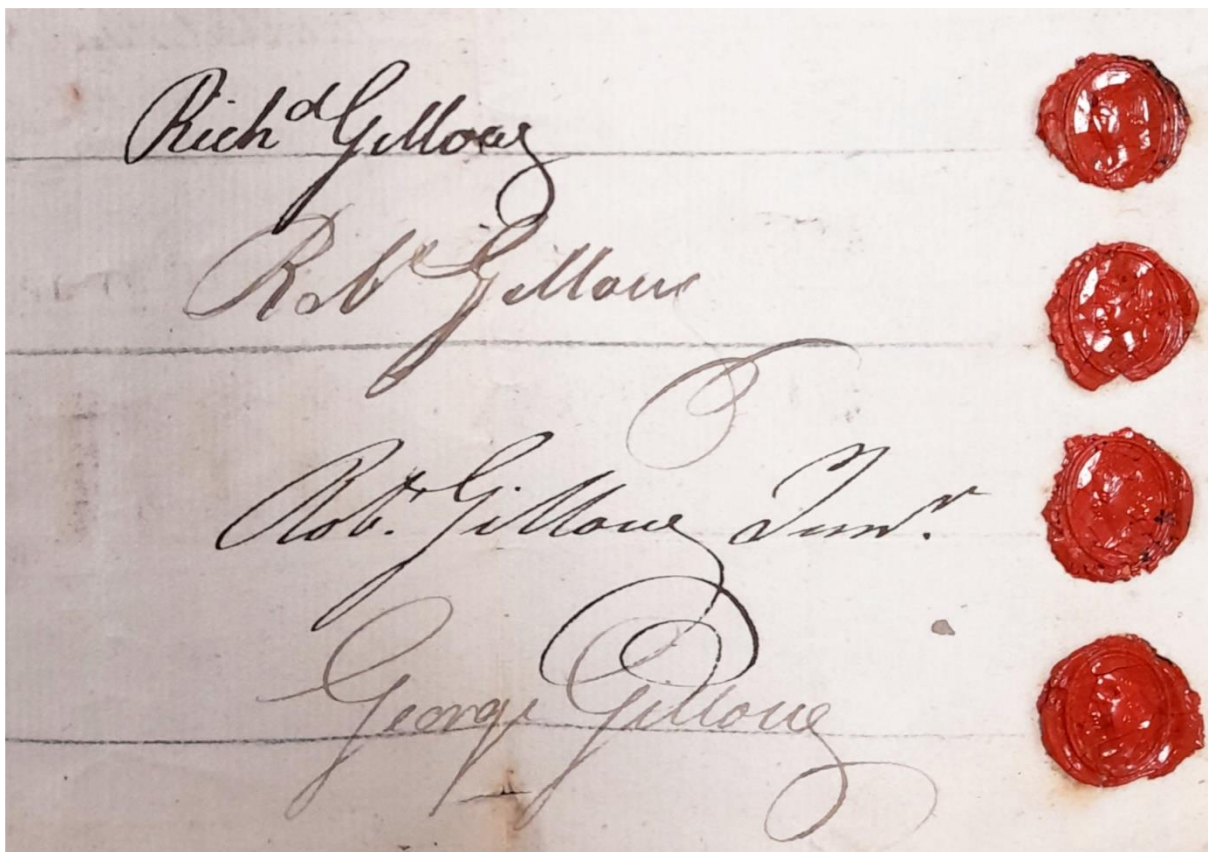 Richd Gillow
Robt Gillow
Robt. Gillow Junr.
George Gillow